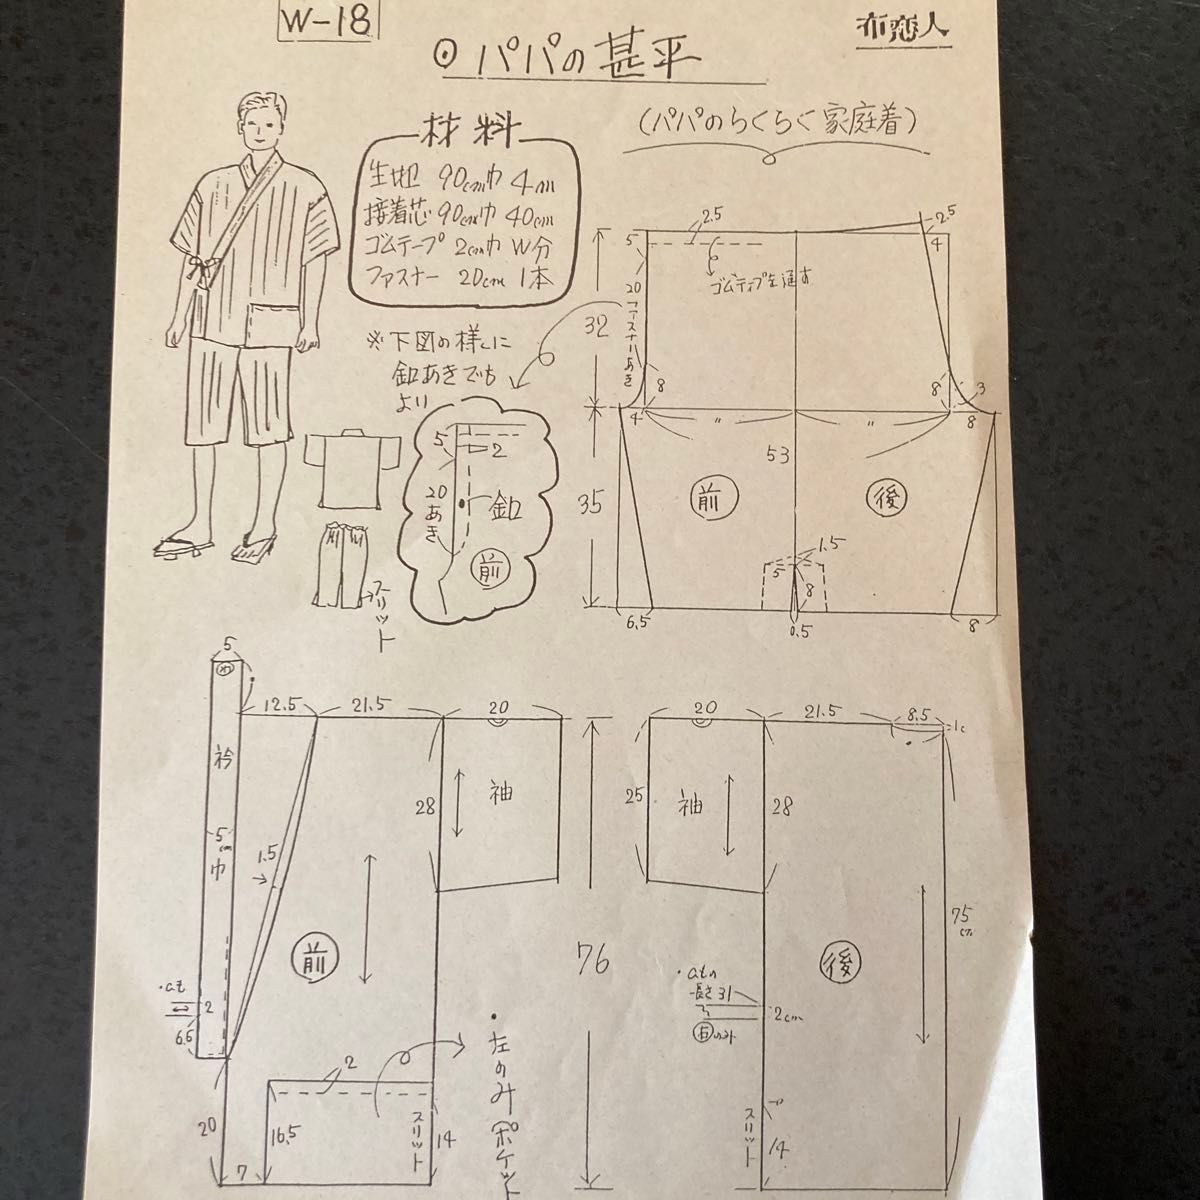 W-18
布恋人
⊙パパの甚平
(パパのらくらく家庭着)
材料
生地 90cm巾 4m
接着芯 90cm巾 40cm
ゴムテープ 2cm巾 W分
ファスナー 20cm 1本
※下図の様に
釦あきでも
より
5
2
20あき
釦
前
スリット
2.5
2.5
5
4
ゴムテープを通す
20ファスナーあき
32
8
8
3
4
〃
〃
8
53
35
前
後
1.5
5
8
6.5
0.5
8
5
12.5
21.5
20
20
21.5
8.5
衿
5cm巾
28
袖
25
袖
28
1.5
前
76
後
75
2
6.5
長さ31
2cm
2
左のみポケット
20
16.5
スリット
14
スリット
14
7